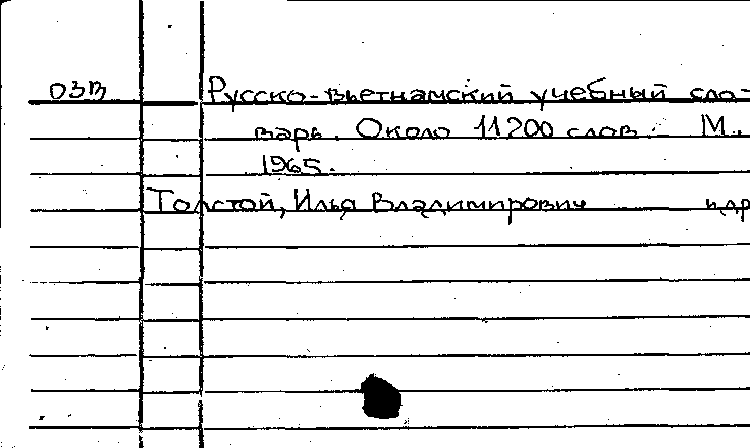 03В Русско-вьетнамский учебный сло-
варь. Около 11200 слов.- М.,
1965.
Толстой, Илья Владимирович и др